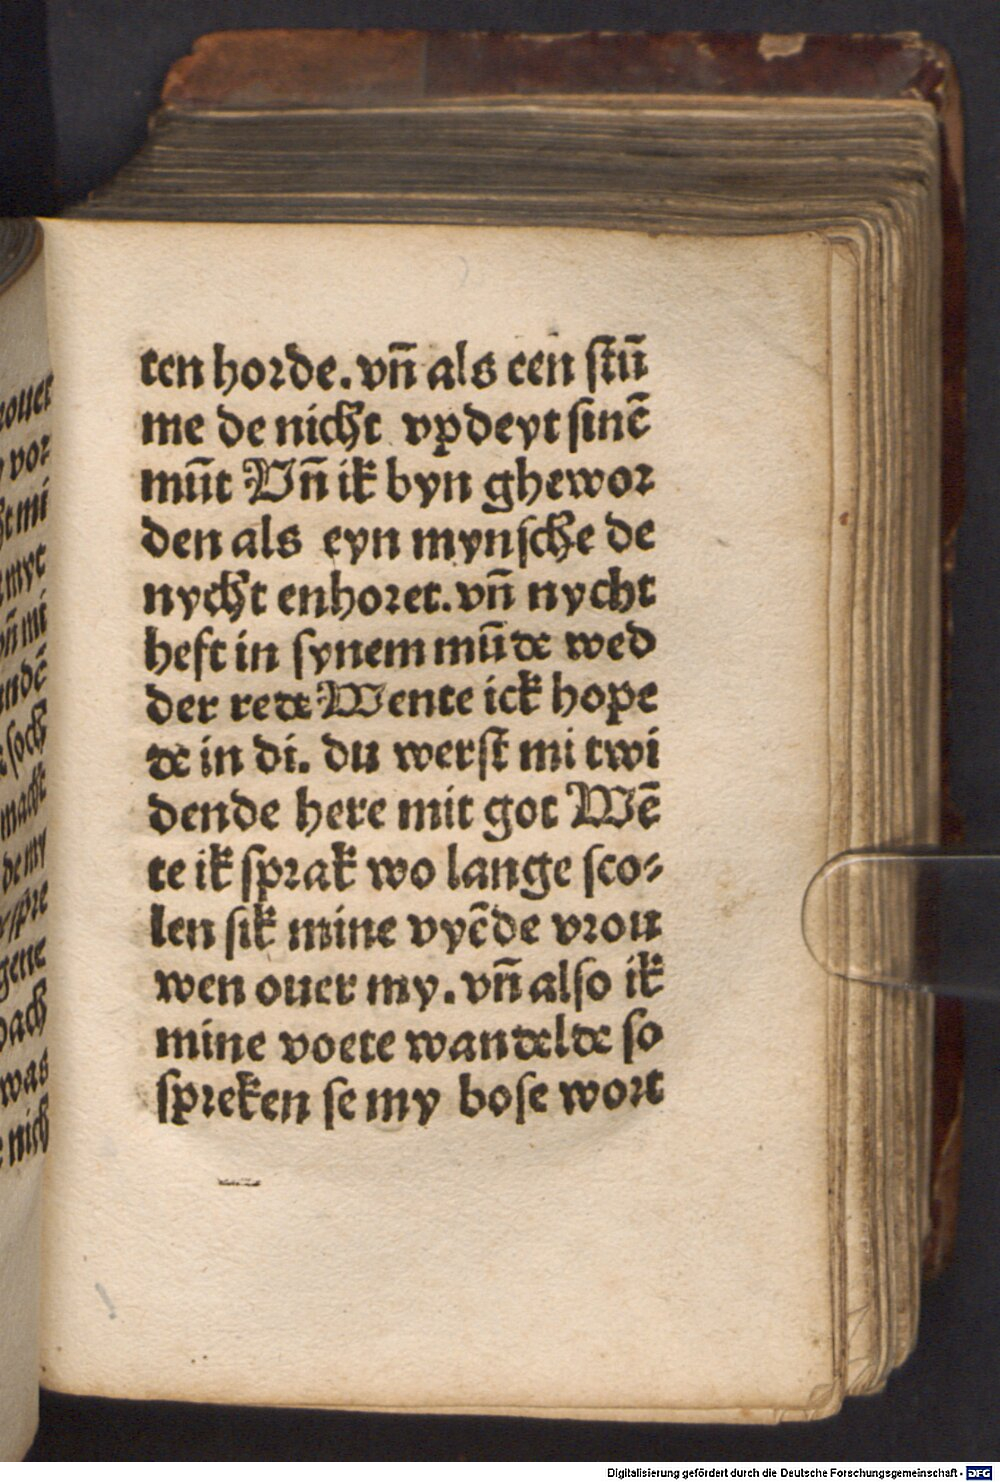 ten horde. vñ als een stū
me de nicht vpdeyt sinē
mūt Vñ ik byn ghewor
den als eyn mynsche de
nycht enhoret. vñ nycht
heft in synem mūde wed
der rede Wente ick hope
de in di. du werst mi twi
dende here mit got Wē
te ik sprak wo lange sco⸗
len sik mine vyēde vrou
wen ouer my. vñ also ik
mine voete wandelde so
spreken se my bose wort
ouer
vor
ht mi
myt
vñ mi
andē
soch
macht
de my
spre
gene
dach
was
nich
Digitalisierung gefördert durch die Deutsche Forschungsgemeinschaft - DFG